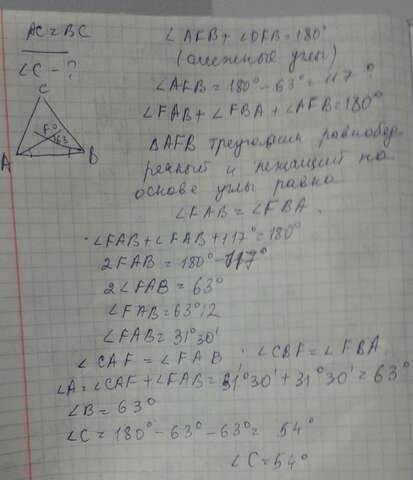 AC = BC
∠C - ?
C
F
63
A
B
∠AFB + ∠DFB = 180°
(смежные углы)
∠AFB = 180° - 63° = 117°
∠FAB + ∠FBA + ∠AFB = 180°
ΔAFB треугольник равнобед
ренный и лежащий на
основе углы равно
∠FAB = ∠FBA.
∠FAB + ∠FAB + 117° = 180°
2FAB = 180° - 117°
2∠FAB = 63°
∠FAB = 63°:2
∠FAB = 31°30'
∠CAF = ∠FAB ∠CBF = ∠FBA
∠A = ∠CAF + ∠FAB = 31°30' + 31°30' = 63°
∠B = 63°
∠C = 180° - 63° - 63° = 54°
∠C = 54°